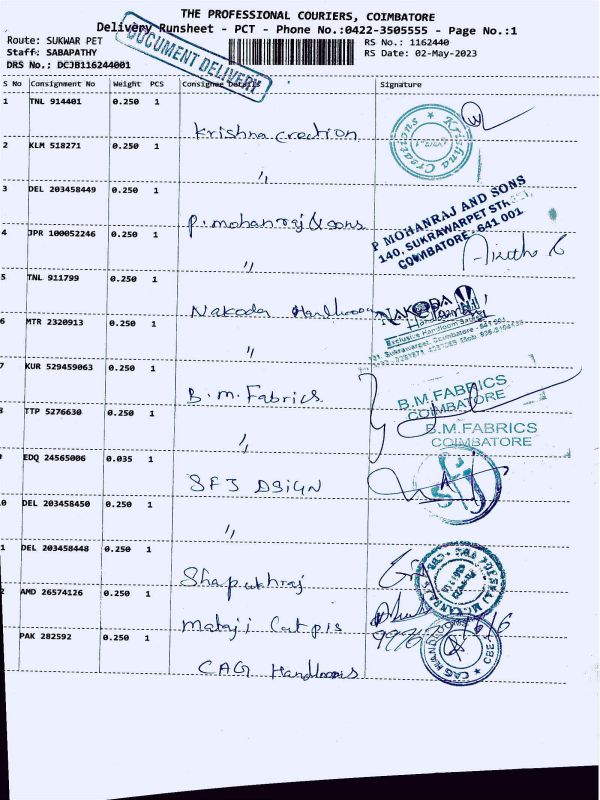 THE PROFESSIONAL COURIERS, COIMBATORE
Delivery Runsheet - PCT - Phone No.:0422-3505555 - Page No.:1
Route: SUKWAR PET
RS No.: 1162440
Staff: SABAPATHY
RS Date: 02-May-2023
DRS No.: DCJB116244001
DOCUMENT DELIVERY
S No Consignment No Weight PCS Consignee Details Signature
1 TNL 914401 0.250 1
Krishna Creation
Krishna Creations
2 KLM 518271 0.250 1
"
3 DEL 203458449 0.250 1
P. mohanraj & sons
P MOHANRAJ AND SONS
140, SUKRAWARPET STREET
COIMBATORE - 641 001
4 JPR 100052246 0.250 1
"
5 TNL 911799 0.250 1
Nakoda Handloom
NAKODA
Exclusive Handloom
6 MTR 2320913 0.250 1
"
7 KUR 529459063 0.250 1
B.M. Fabrics
B.M.FABRICS
COIMBATORE
8 TTP 5276630 0.250 1
"
B.M.FABRICS
COIMBATORE
9 EDQ 24565006 0.035 1
SFJ DSIGN
10 DEL 203458450 0.250 1
"
11 DEL 203458448 0.250 1
12 AMD 26574126 0.250 1
mataji
PAK 282592 0.250 1
CAG Handlooms
CAG HAND CBE